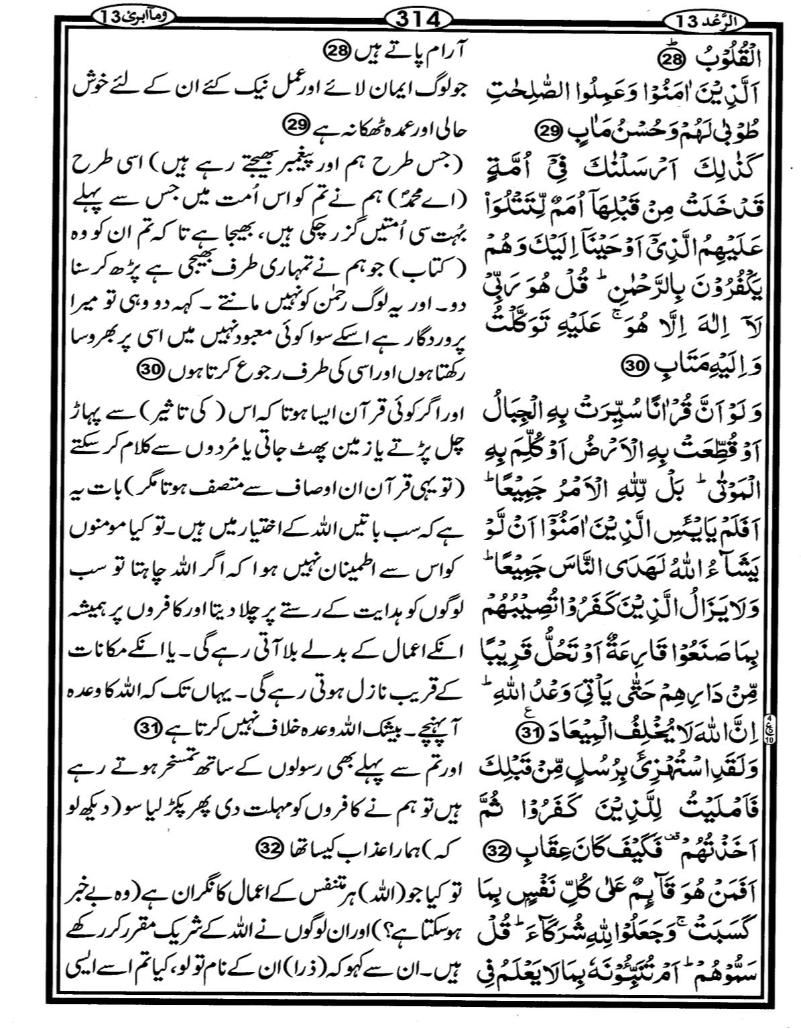 الرَّعْد 13
314
وَمَآ اُبَرِّئُ 13
الْقُلُوْبُ ؕ 28
اَلَّذِيْنَ اٰمَنُوْا وَعَمِلُوا الصّٰلِحٰتِ
طُوْبٰى لَهُمْ وَحُسْنُ مَاٰبٍ 29
كَذٰلِكَ اَرْسَلْنٰكَ فِيْٓ اُمَّةٍ
قَدْ خَلَتْ مِنْ قَبْلِهَآ اُمَمٌ لِّتَتْلُوَا۟
عَلَيْهِمُ الَّذِيْٓ اَوْحَيْنَآ اِلَيْكَ وَهُمْ
يَكْفُرُوْنَ بِالرَّحْمٰنِ ؕ قُلْ هُوَ رَبِّيْ
لَآ اِلٰهَ اِلَّا هُوَ ۚ عَلَيْهِ تَوَكَّلْتُ
وَاِلَيْهِ مَتَابِ 30
وَلَوْ اَنَّ قُرْاٰنًا سُيِّرَتْ بِهِ الْجِبَالُ
اَوْ قُطِّعَتْ بِهِ الْاَرْضُ اَوْ كُلِّمَ بِهِ
الْمَوْتٰى ؕ بَلْ لِّلّٰهِ الْاَمْرُ جَمِيْعًا ؕ
اَفَلَمْ يَايْـَٔسِ الَّذِيْنَ اٰمَنُوْٓا اَنْ لَّوْ
يَشَآءُ اللّٰهُ لَهَدَى النَّاسَ جَمِيْعًا ؕ
وَلَا يَزَالُ الَّذِيْنَ كَفَرُوْا تُصِيْبُهُمْ
بِمَا صَنَعُوْا قَارِعَةٌ اَوْ تَحُلُّ قَرِيْبًا
مِّنْ دَارِهِمْ حَتّٰى يَاْتِيَ وَعْدُ اللّٰهِ ؕ
اِنَّ اللّٰهَ لَا يُخْلِفُ الْمِيْعَادَ 31 ع
وَلَقَدِ اسْتُهْزِئَ بِرُسُلٍ مِّنْ قَبْلِكَ
فَاَمْلَيْتُ لِلَّذِيْنَ كَفَرُوْا ثُمَّ
اَخَذْتُهُمْ ۫ فَكَيْفَ كَانَ عِقَابِ 32
اَفَمَنْ هُوَ قَآئِمٌ عَلٰى كُلِّ نَفْسٍ بِمَا
كَسَبَتْ ۚ وَجَعَلُوْا لِلّٰهِ شُرَكَآءَ ؕ قُلْ
سَمُّوْهُمْ ؕ اَمْ تُنَبِّـُٔوْنَهٗ بِمَا لَا يَعْلَمُ فِي
آرام پاتے ہیں 28
جو لوگ ایمان لائے اور عمل نیک کئے ان کے لئے خوش
حالی اور عمدہ ٹھکانہ ہے 29
(جس طرح ہم اور پیغمبر بھیجتے رہے ہیں) اسی طرح
(اے محمدؐ) ہم نے تم کو اس اُمت میں جس سے پہلے
بہُت سی اُمتیں گزر چکی ہیں، بھیجا ہے تا کہ تم ان کو وہ
(کتاب) جو ہم نے تمہاری طرف بھیجی ہے پڑھ کر سنا
دو۔ اور یہ لوگ رحمٰن کو نہیں مانتے۔ کہہ دو وہی تو میرا
پروردگار ہے اسکے سوا کوئی معبود نہیں میں اسی پر بھروسا
رکھتا ہوں اور اسی کی طرف رجوع کرتا ہوں 30
اور اگر کوئی قرآن ایسا ہوتا کہ اس (کی تاثیر) سے پہاڑ
چل پڑتے یا زمین پھٹ جاتی یا مُردوں سے کلام کر سکتے
(تو یہی قرآن ان اوصاف سے متصف ہوتا مگر) بات یہ
ہے کہ سب باتیں اللہ کے اختیار میں ہیں۔ تو کیا مومنوں
کو اس سے اطمینان نہیں ہوا کہ اگر اللہ چاہتا تو سب
لوگوں کو ہدایت کے رستے پر چلا دیتا اور کافروں پر ہمیشہ
انکے اعمال کے بدلے بلا آتی رہے گی۔ یا انکے مکانات
کے قریب نازل ہوتی رہے گی۔ یہاں تک کہ اللہ کا وعدہ
آ پہنچے۔ بیشک اللہ وعدہ خلاف نہیں کرتا ہے 31
اور تم سے پہلے بھی رسولوں کے ساتھ تمسخر ہوتے رہے
ہیں تو ہم نے کافروں کو مہلت دی پھر پکڑ لیا سو (دیکھ لو
کہ) ہمارا عذاب کیسا تھا 32
تو کیا جو (اللہ) ہر متنفس کے اعمال کا نگران ہے (وہ بے خبر
ہو سکتا ہے؟) اور ان لوگوں نے اللہ کے شریک مقرر کر رکھے
ہیں۔ ان سے کہو کہ (ذرا) ان کے نام تو لو، کیا تم اسے ایسی